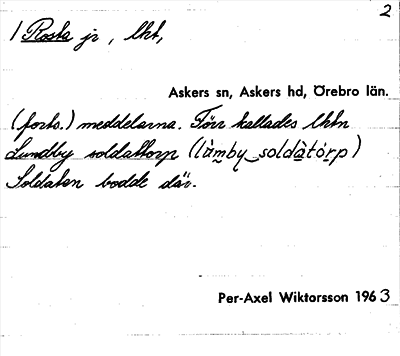 2
1 Rosta jr, lht,
Askers sn, Askers hd, Örebro län.
(forts.) meddelarna. Förr kallades lhtn
Lundby soldattorp (lùmby soldàtórp)
Soldaten bodde där.
Per-Axel Wiktorsson 1963